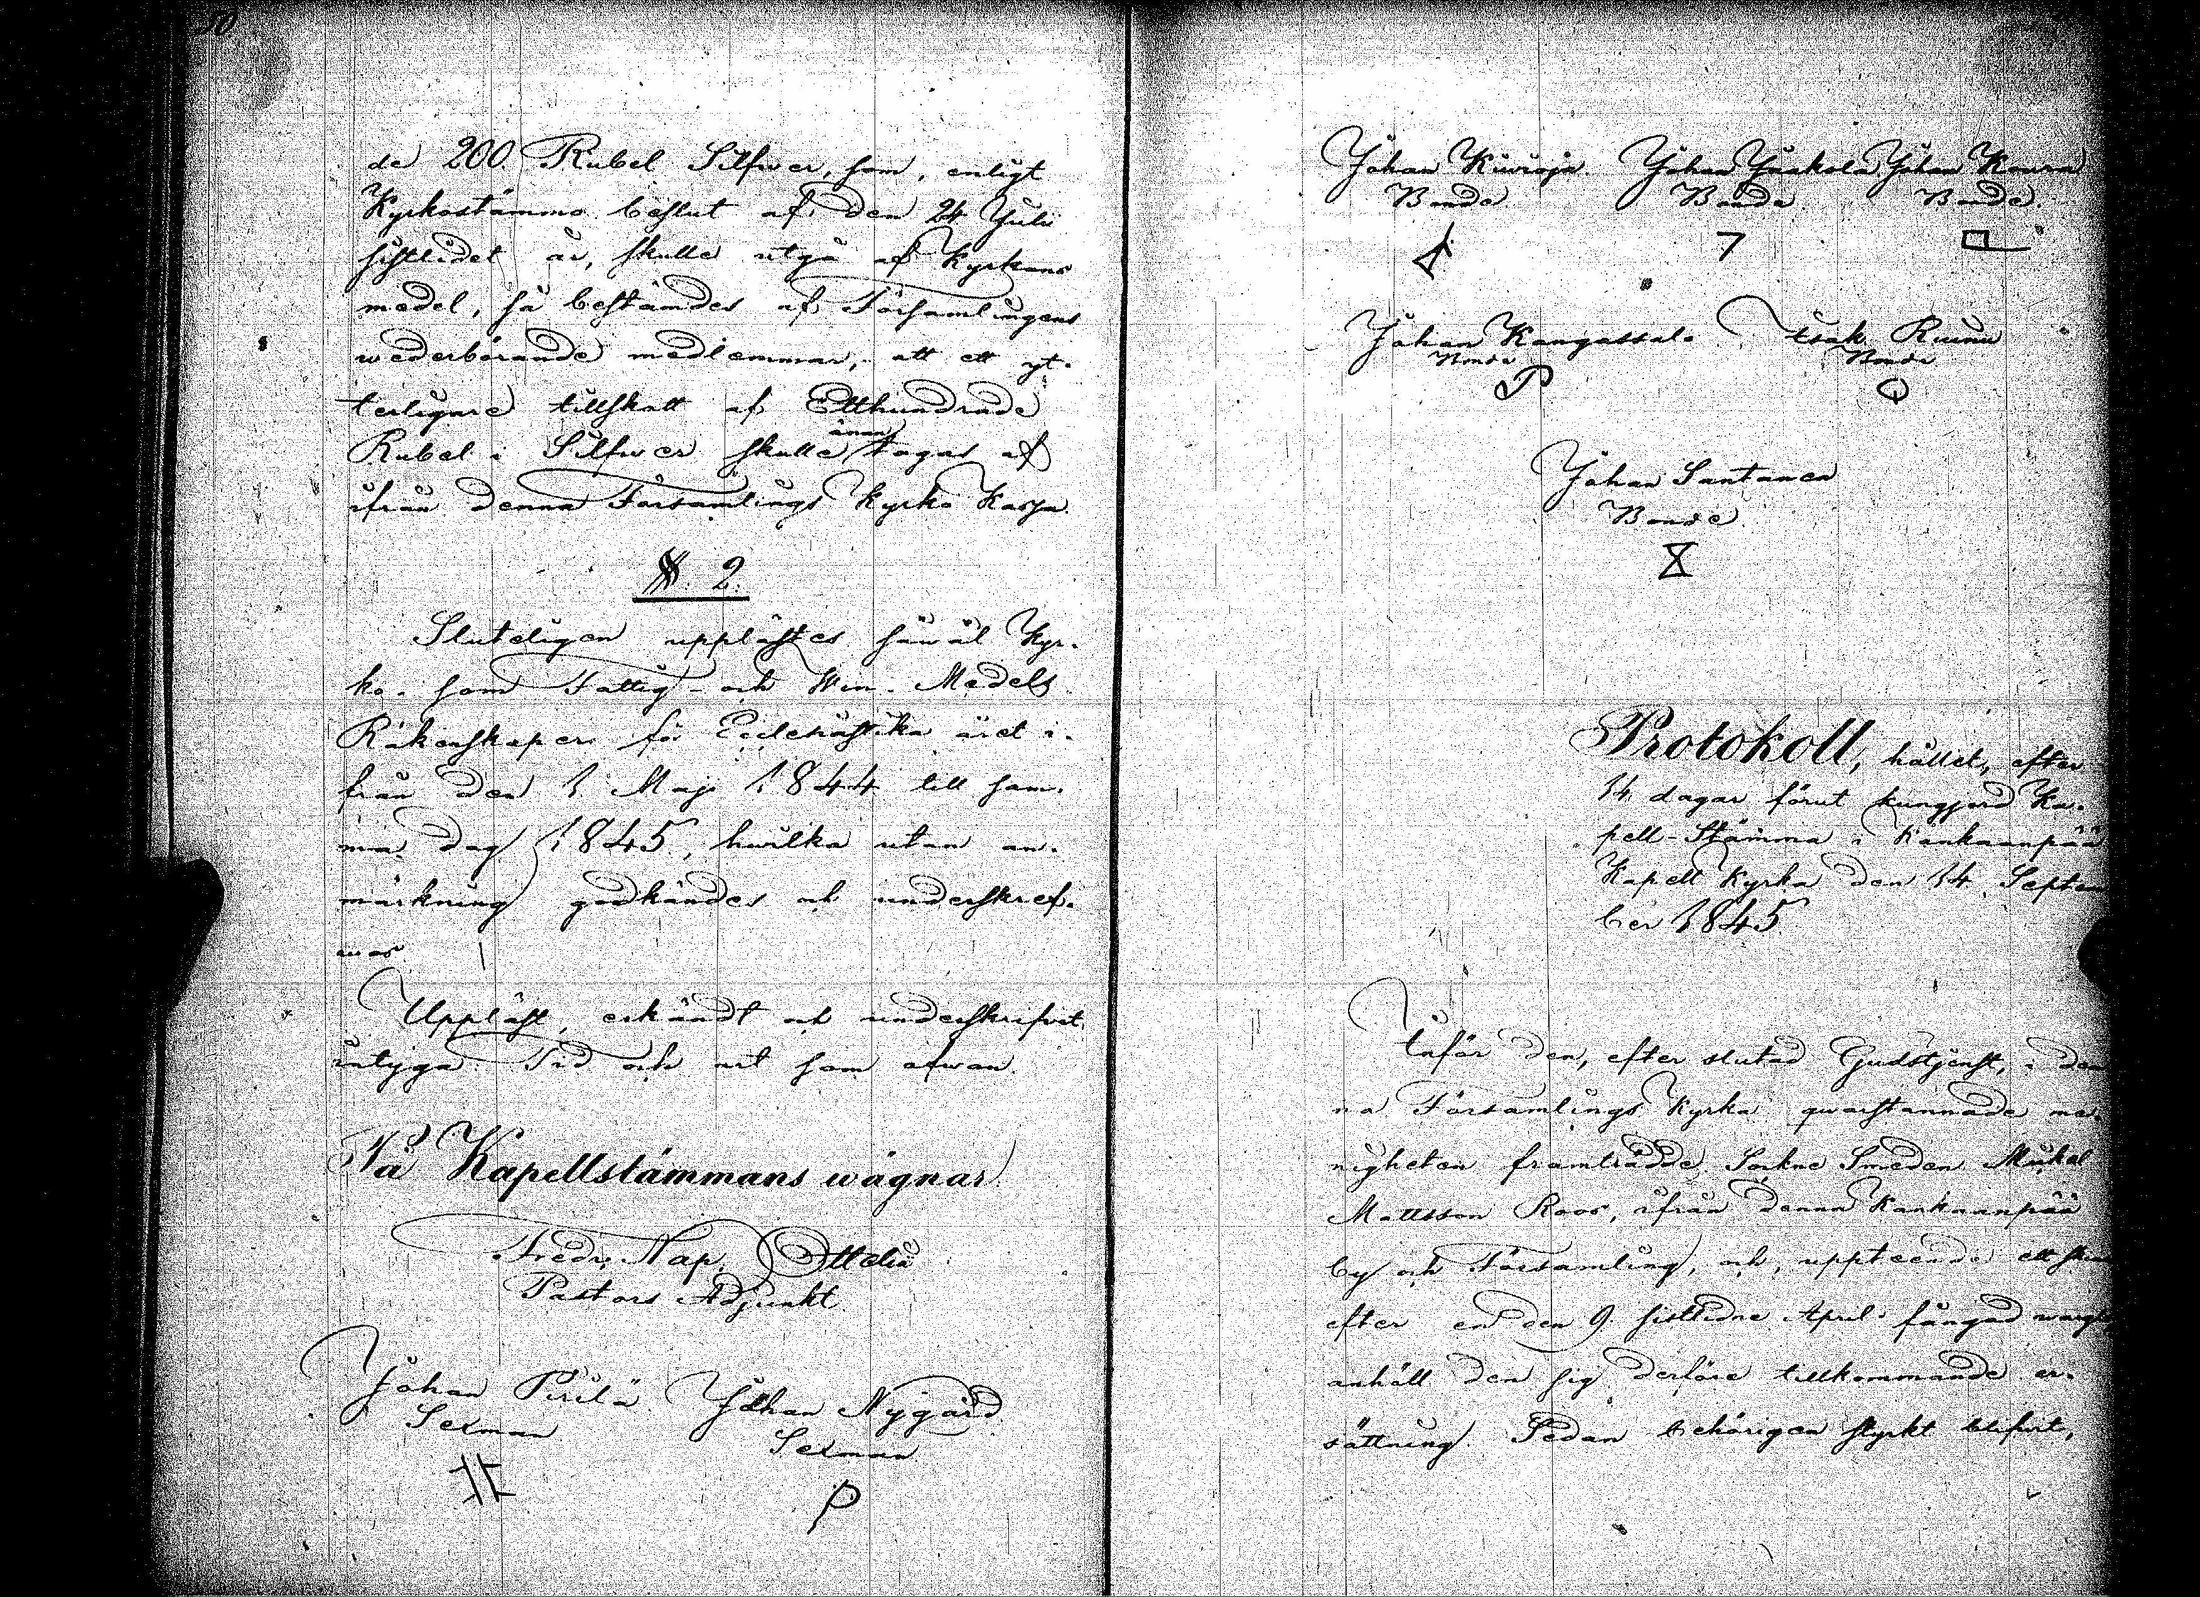 50
de 200. Rubel Silfwer, som, enligt
Kyrkostämmo beslut af den 24 Juli
sistlidet år, skulle utgå af Kyrkans
medel, så bestämdes af Församlingens
wederbörande medlemmar, att ett yt-
terligare tillskott af Etthundrade
Rubel i Silfwer skulle ännu tagas af
ifrån denna Församlings Kyrko Kassa.
§. 2.
Sluteligen upplästes såwäl Kyr-
ko- som Fattig- och Win- Medels
Räkenskaper för Ecclesiastika året i-
från den 1 Maji 1844 till sam-
ma dag 1845, hwilka utan an-
märkning godkändes och underskref-
wos.
Uppläst, erkändt och underskrifvet,
intyga. Tid och ort som ofwan.
På Kapellstämmans wägnar
Fredr. Nap. Ottelin
Pastors Adjunkt
Johan Pirilä Johan Nygård
Sexman Sexman
Johan Kiwioja Johan Jaakola Johan Koura
Bonde Bonde Bonde
Johan Kangassalo Isak Ruinu
Bonde Bonde
Johan Santanen
Bonde
Protokoll, hållet, efter
14 dagar förut kungjord Ka-
pell-Stämma i Kankaanpää
Kapell Kyrka den 14 Septem
ber 1845.
Inför den, efter slutad Gudstjenst, i den
na Församlings Kyrka qwarstannade me-
nigheten framträdde Sockne Smeden Mickel
Mattsson Roos, ifrån denna Kankaanpää
by och Församling, och, uppteende ett skinn
efter en den 9. sistlidne April fångad
anhöll den sig derföre tillkommande er-
sättning. Sedan behörigen styrkt blifwit,